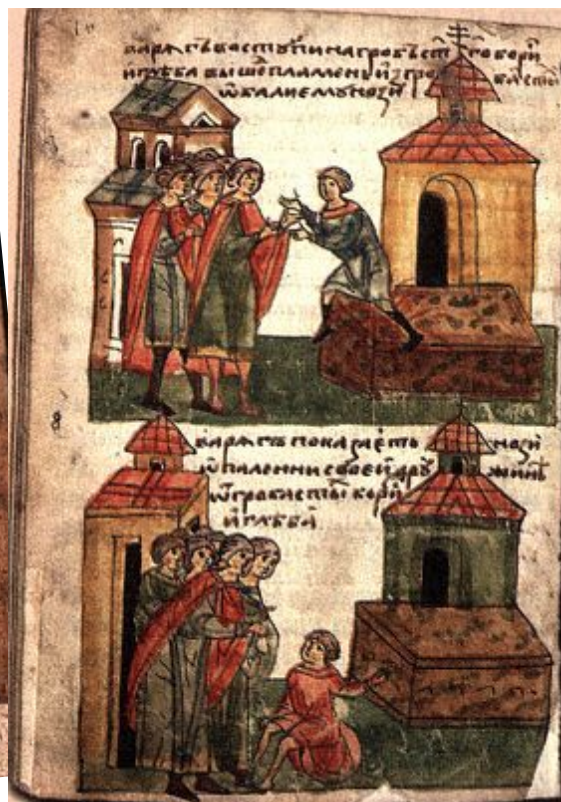 варягъ воступи на гробъ ст҃го бори
и глѣба выше пламень изъ гро ба ст҃ы
ѡпали ему нозѣ
варягъ показаеть нозѣ
ѡпаленни своей дру жинѣ
ѿ гроба ст҃ы бори
и глѣба